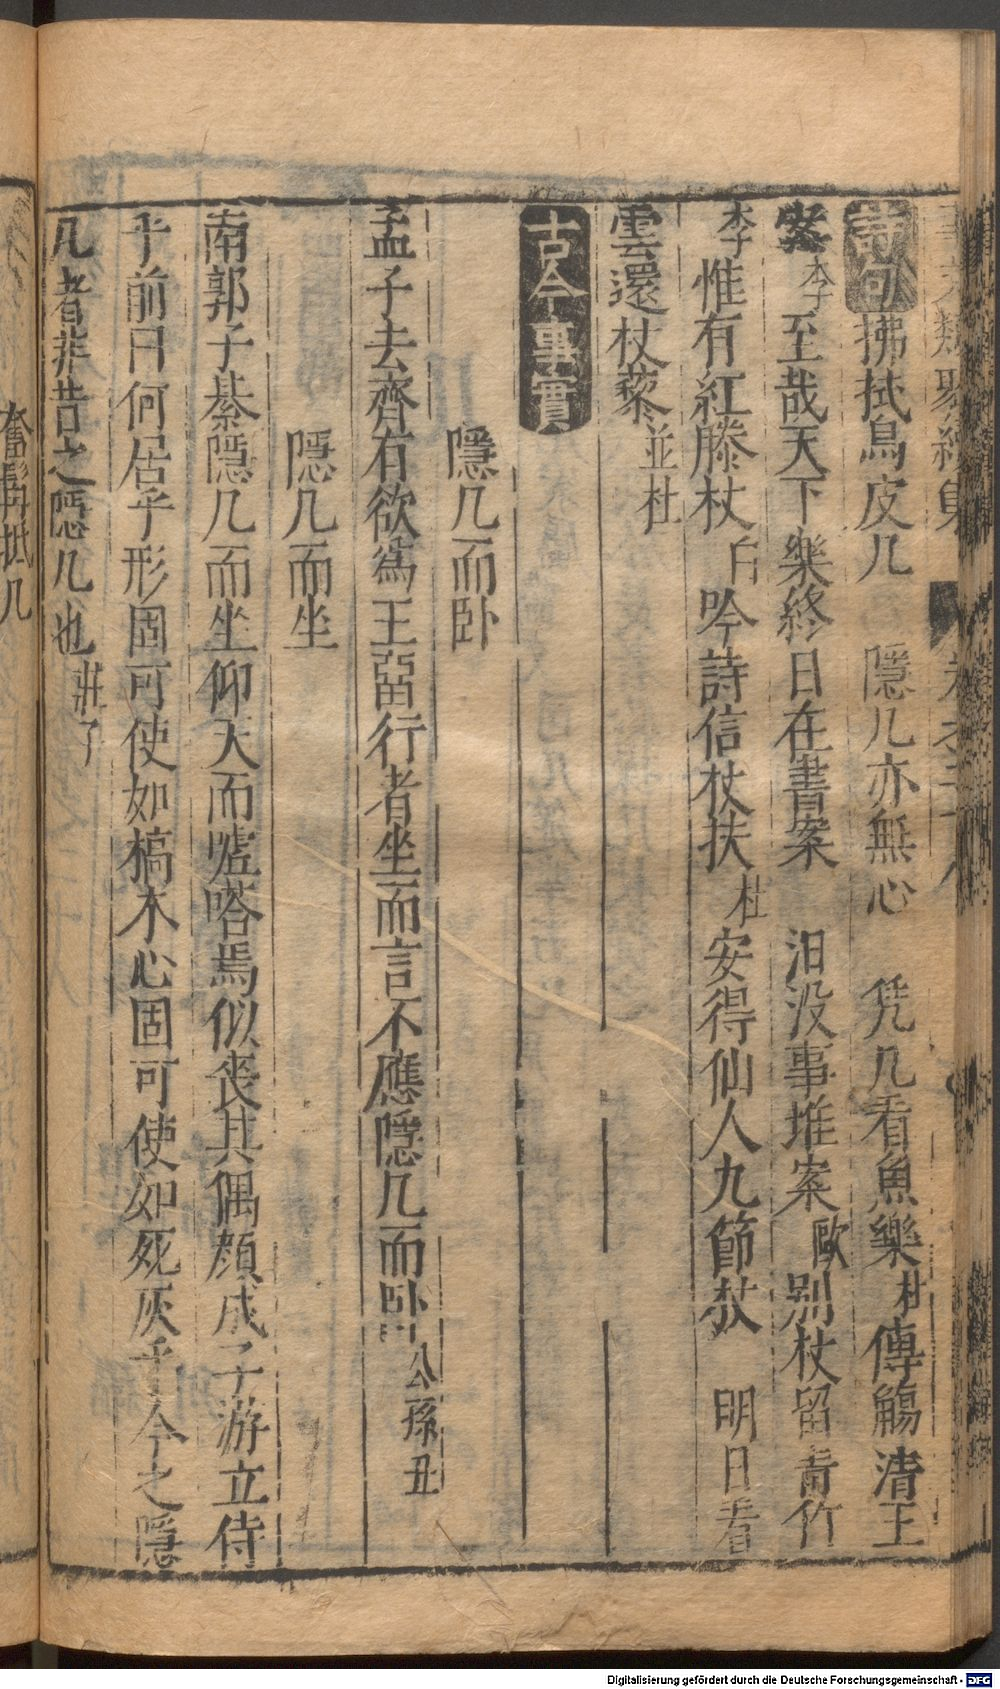 詩句拂拭烏皮几 隱几亦無心 凭几看魚樂杜傳觴清玉
案李至哉天下樂終日在書案 汨没事堆案歐别杖留青竹
李惟有紅藤杖白吟詩信杖扶杜安得仙人九節杖 明日看
雲還杖藜並杜
古今事實
隱几而卧
孟子去齊有欲爲王畱行者坐而言不應隱几而卧公孫丑
隱几而坐
南郭子綦隱几而坐仰天而嘘嗒焉似喪其偶顔成子游立侍
乎前曰何居乎形固可使如槁木心固可使如死灰乎今之隱
几者非昔之隱几也莊子
奮髯抵几
Digitalisierung gefördert durch die Deutsche Forschungsgemeinschaft - DFG